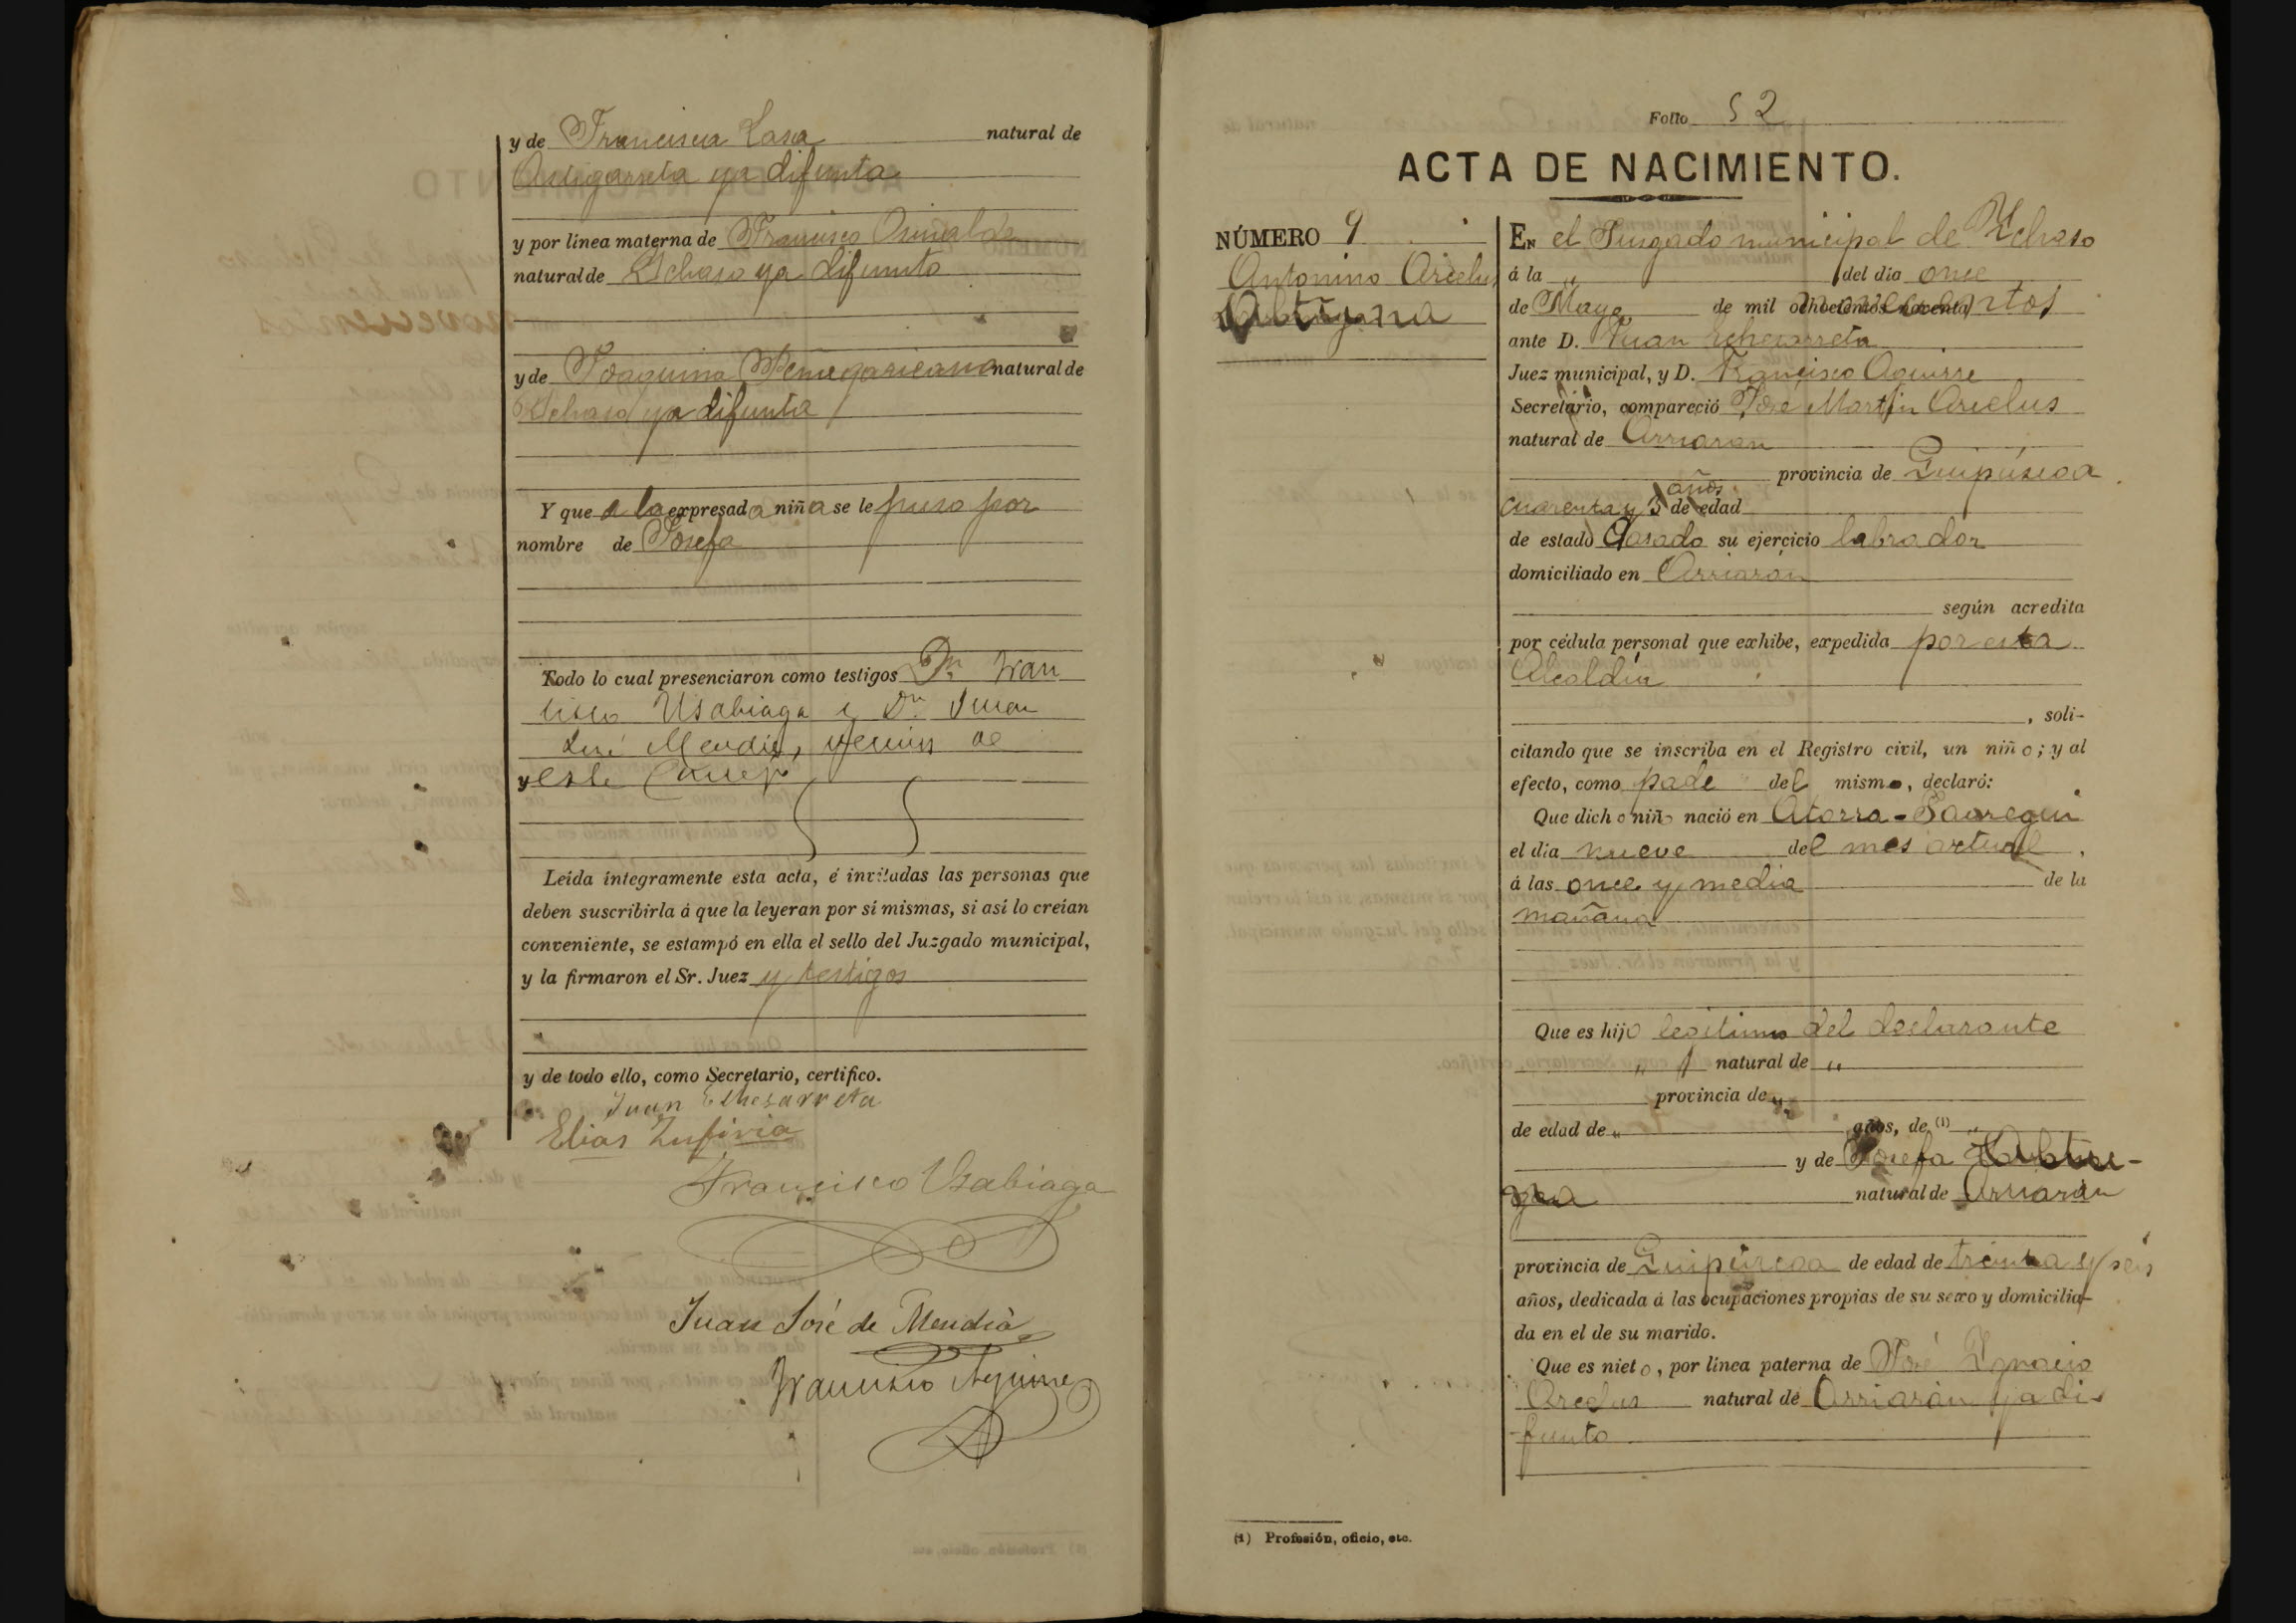 y de Francisca Lasa natural de
Astigarreta ya difunta
y por línea materna de Francisco
natural de Ychaso ya difunto
y de Joaquina natural de
Ychaso ya difunta
Y que a la expresada niña se le puso por
nombre de Josefa
Todo lo cual presenciaron como testigos Dn. Fran
cisco Usabiaga y Dn. Juan
José Mendia, vecinos de
este
Leída íntegramente esta acta, é invitadas las personas que
deben suscribirla á que la leyeran por sí mismas, si así lo creían
conveniente, se estampó en ella el sello del Juzgado municipal,
y la firmaron el Sr. Juez y testigos
y de todo ello, como Secretario, certifico.
Juan Echezarreta
Elias Zufiria
Francisco Usabiaga
Juan José de Mendia
Francisco Aguirre
Folio 52
ACTA DE NACIMIENTO.
NÚMERO 9
Antonino Arcelus
EN el Jusgado municipal de Ychaso
á la „ del día once
de Mayo de mil novecientos
ante D. Juan Echezarreta
Juez municipal, y D. Francisco Aguirre
Secretario, compareció José Martin Arcelus
natural de Arriaran
provincia de Guipúscoa
años
cuarenta y 3 de edad
de estado Casado su ejercicio labrador
domiciliado en Arriarán
según acredita
por cédula personal que exhibe, expedida por esta
Alcaldia
, soli-
citando que se inscriba en el Registro civil, un niño; y al
efecto, como pade del mismo, declaró:
Que dicho niño nació en Atorra-Sauregui
el día nueve del mes actual
á las once y media de la
mañana
Que es hijo legitimo del declarante
„ natural de „
provincia de „
de edad de „ años, de (1) „
y de Josefa
natural de Arriarán
provincia de Guipúrcoa de edad de treinta y seis
años, dedicada á las ocupaciones propias de su sexo y domicilia-
da en el de su marido.
Que es nieto, por línea paterna de José Ygnacio
Arcelus natural de Arriarán ya di-
funto
(1) Profesión, oficio, etc.